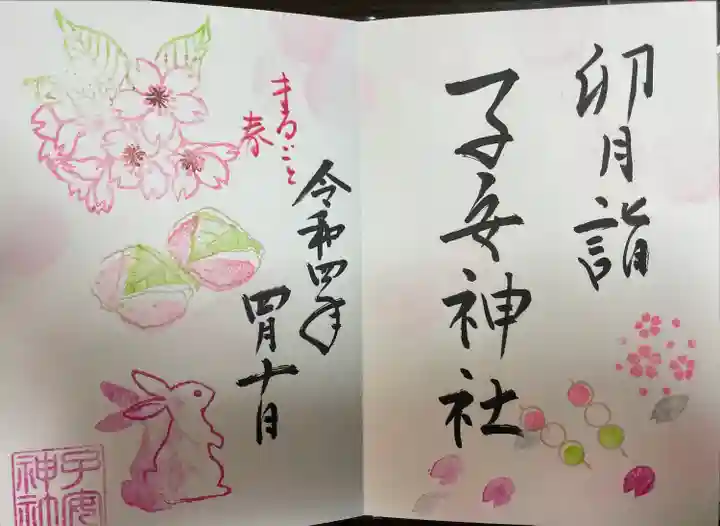 卯月詣
子安神社
令和四年
四月十日
まるごと
春
子安
神社